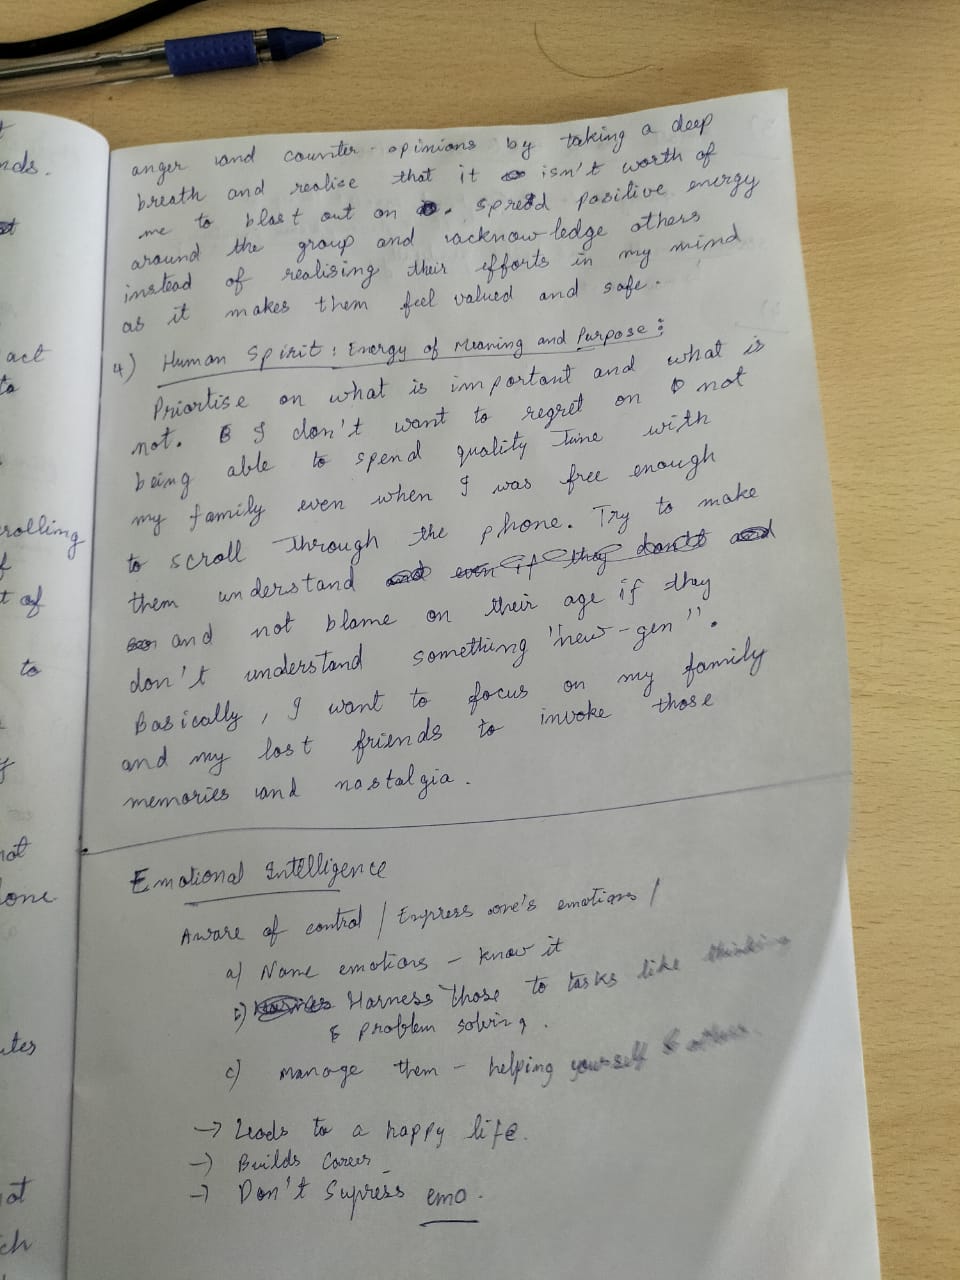 anger and counter-opinions by taking a deep
breath and realise that it isn't worth of
me to blast out on. spread positive energy
around the group and acknowledge others
instead of realising their efforts in my mind
as it makes them feel valued and safe.
4) Human Spirit : Energy of Meaning and Purpose :
Priortise on what is important and what is
not. I don't want to regret on not
being able to spend quality time with
my family even when I was free enough
to scroll through the phone. Try to make
them understand
and not blame on their age if they
don't understand something "new-gen".
Basically, I want to focus on my family
and my lost friends to invoke those
memories and nostalgia.
Emotional Intelligence
Aware of control / Express one's emotions /
a) Name emotions - know it
Harness those to tasks like thinking
& problem solving.
c) manage them - helping yourself & others
-> Leads to a happy life.
-> Builds Career
-> Don't Supress emo.
nds.
act
to
rolling
t of
to
not
ot